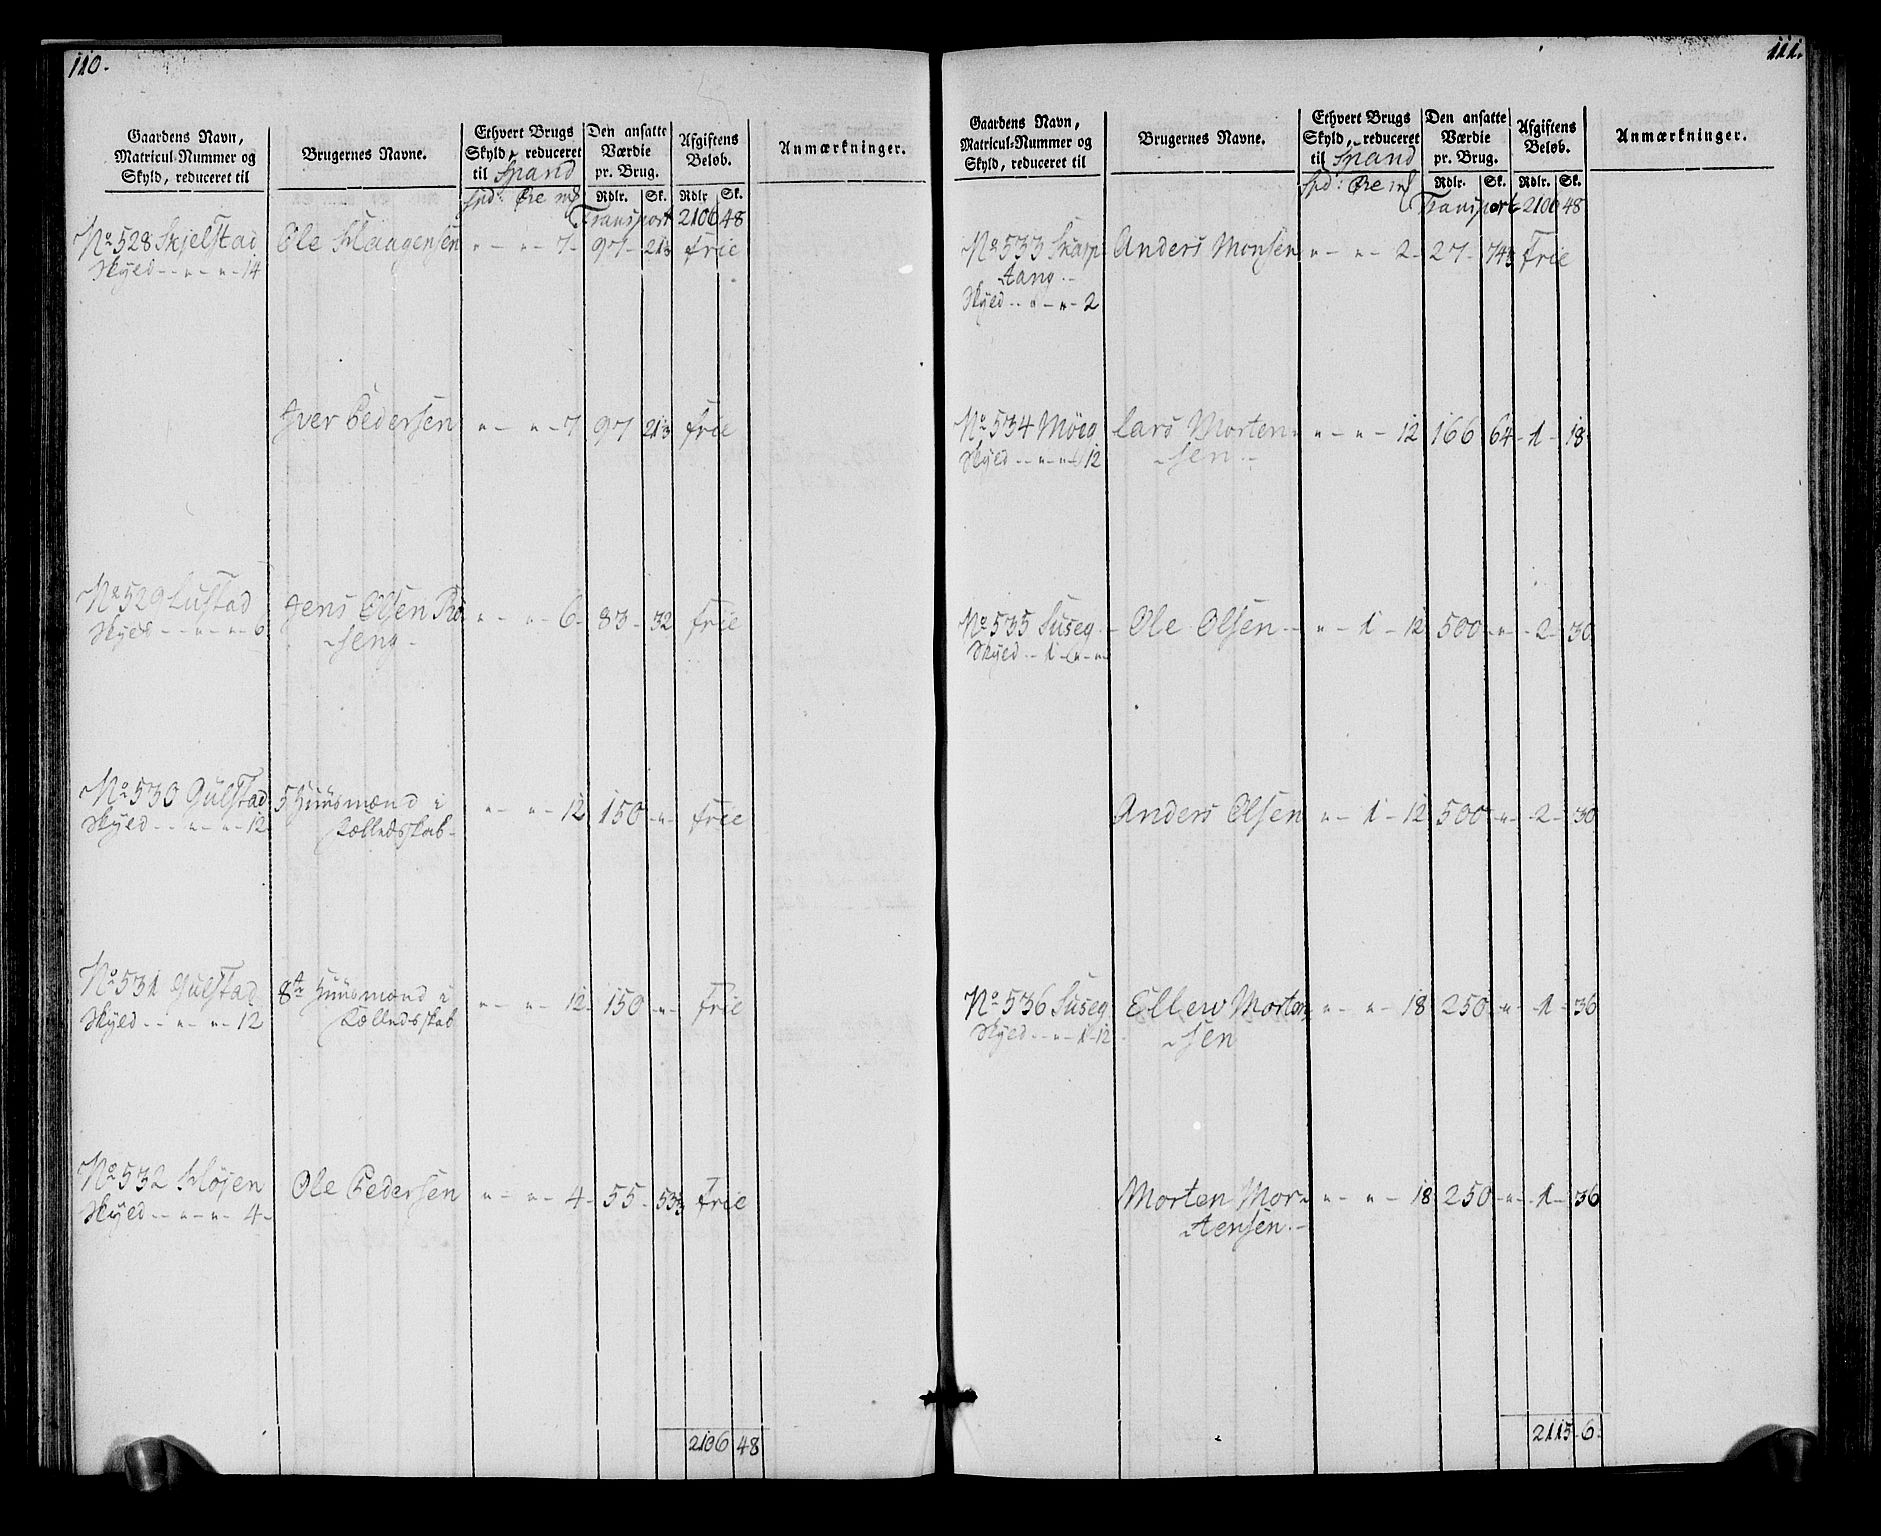 110.
Gaardens Navn,
Matricul-Nummer og
Skyld, reduceret til
Brugernes Navne.
Ethvert Brugs
Skyld, reduceret
til Spand
Spd: Øre mk
Den ansatte
Værdie
pr. Brug.
Rdlr. Sk.
Afgiftens
Beløb.
Rdlr Sk.
Anmærkninger.
Transport 2106 48
No 528 Skjelstad Ole Haagensen " - " - 7 - 97 - 21 1/3 frie
Skyld - - " - " - 14
Iver Pedersen " - " - 7 97 21 1/3 frie
No 529 Lustad Jens Olsen Rø " - " - 6 - 83 - 32 frie
Skyld - - " - " - 6 seng -
No 530 Gulstad 5 Huusmænd i " - " - 12 150 - " - frie
Skyld - - " - " - 12 Fælledsskab -
No 531 Gulstad 8te Huusmænd i " - " - 12 - 150 " - frie
Skyld - - " - " - 12 Fælledsskab
No 532 Kløjen Ole Pedersen " - " - 4 - 55 - 53 1/3 frie
Skyld - - " - " - 4 -
2106 48
111.
Gaardens Navn,
Matricul-Nummer og
Skyld, reduceret til
Brugernes Navne.
Ethvert Brugs
Skyld, reduceret
til Spand
Spd: Øre mk
Den ansatte
Værdie
pr. Brug.
Rdlr. Sk.
Afgiftens
Beløb.
Rdlr. Sk.
Anmærkninger.
Transport 2106 48
No 533 Skarp Anders Monsen " - " - 2 - 27 - 74 2/3 frie
Aang. -
Skyld - - " - " - 2
No 534 Möeg Lars Morten- " - " - 12 166 64 - 1 - 18
Skyld - - " - " - 12 sen -
No 535 Suseg - Ole Olsen - " - 1 - 12 500 - " - 2 - 30
Skyld - 1 - " - "
Anders Olsen " - 1 - 12 500 - " - 2 - 30
No 536 Suseg Ellew Morten " - " - 18 250 - " - 1 - 36
Skyld - - " - 1 - 12 - sen
Morten Mor- " - " - 18 250 - " - 1 - 36
tensen. -
2115 - 6 -